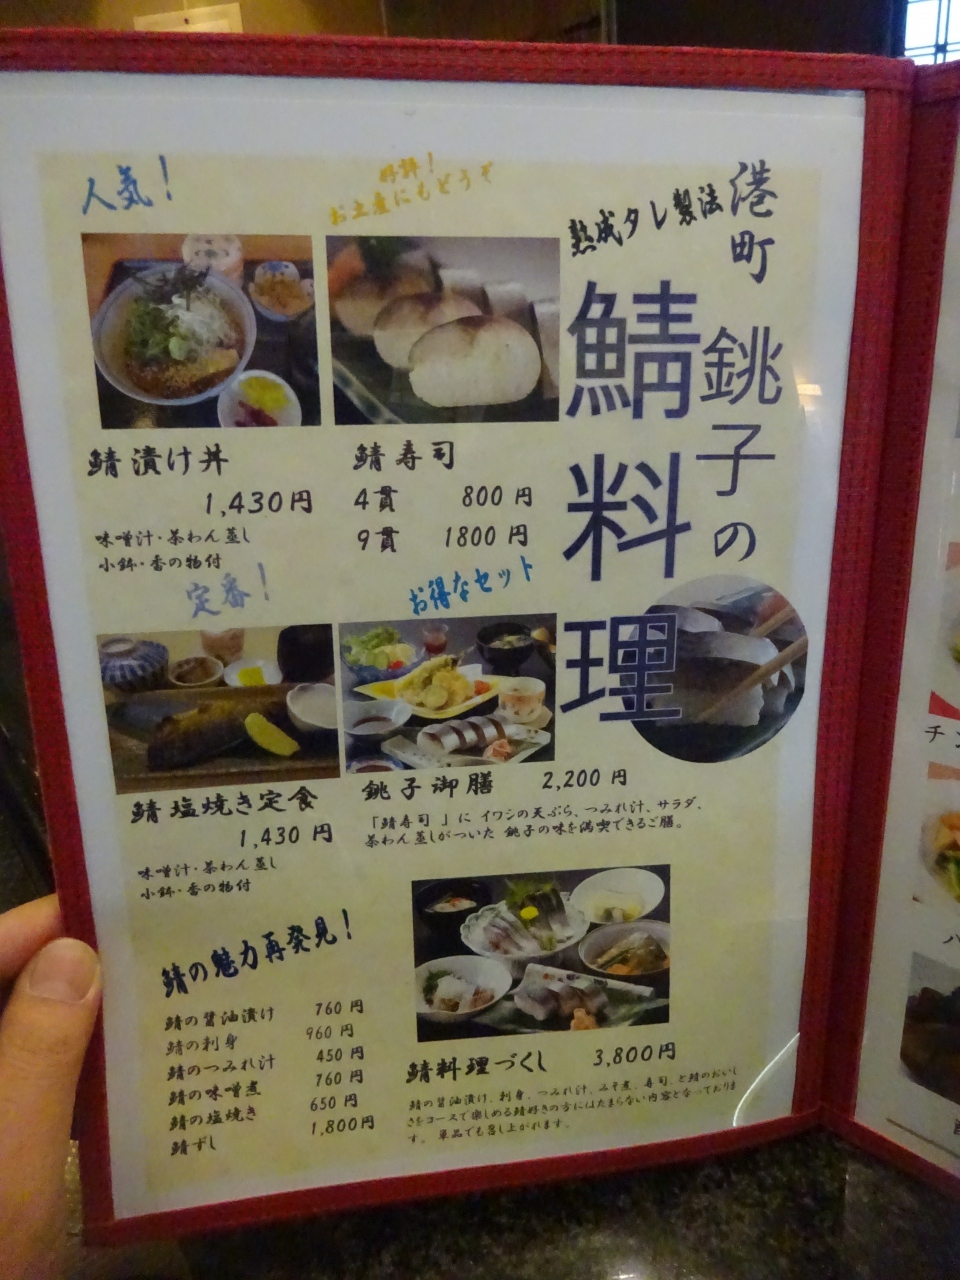 港町 銚子の
熟成タレ製法
鯖料理
人気！
好評！
お土産にもどうぞ
鯖漬け丼
1,430円
味噌汁・茶わん蒸し
小鉢・香の物付
鯖寿司
4貫 800円
9貫 1800円
定番！
鯖塩焼き定食
1,430円
味噌汁・茶わん蒸し
小鉢・香の物付
お得なセット
銚子御膳 2,200円
「鯖寿司」に イワシの天ぷら、つみれ汁、サラダ、
茶わん蒸しがついた 銚子の味を満喫できるご膳。
鯖の魅力再発見！
鯖の醤油漬け 760円
鯖の刺身 960円
鯖のつみれ汁 450円
鯖の味噌煮 760円
鯖の塩焼き 650円
鯖ずし 1,800円
鯖料理づくし 3,800円
鯖の醤油漬け、刺身、つみれ汁、みそ煮、寿司、と鯖のおいし
さをコースで楽しめる鯖好きの方にはたまらない内容となっておりま
す。 単品でも召し上がれます。